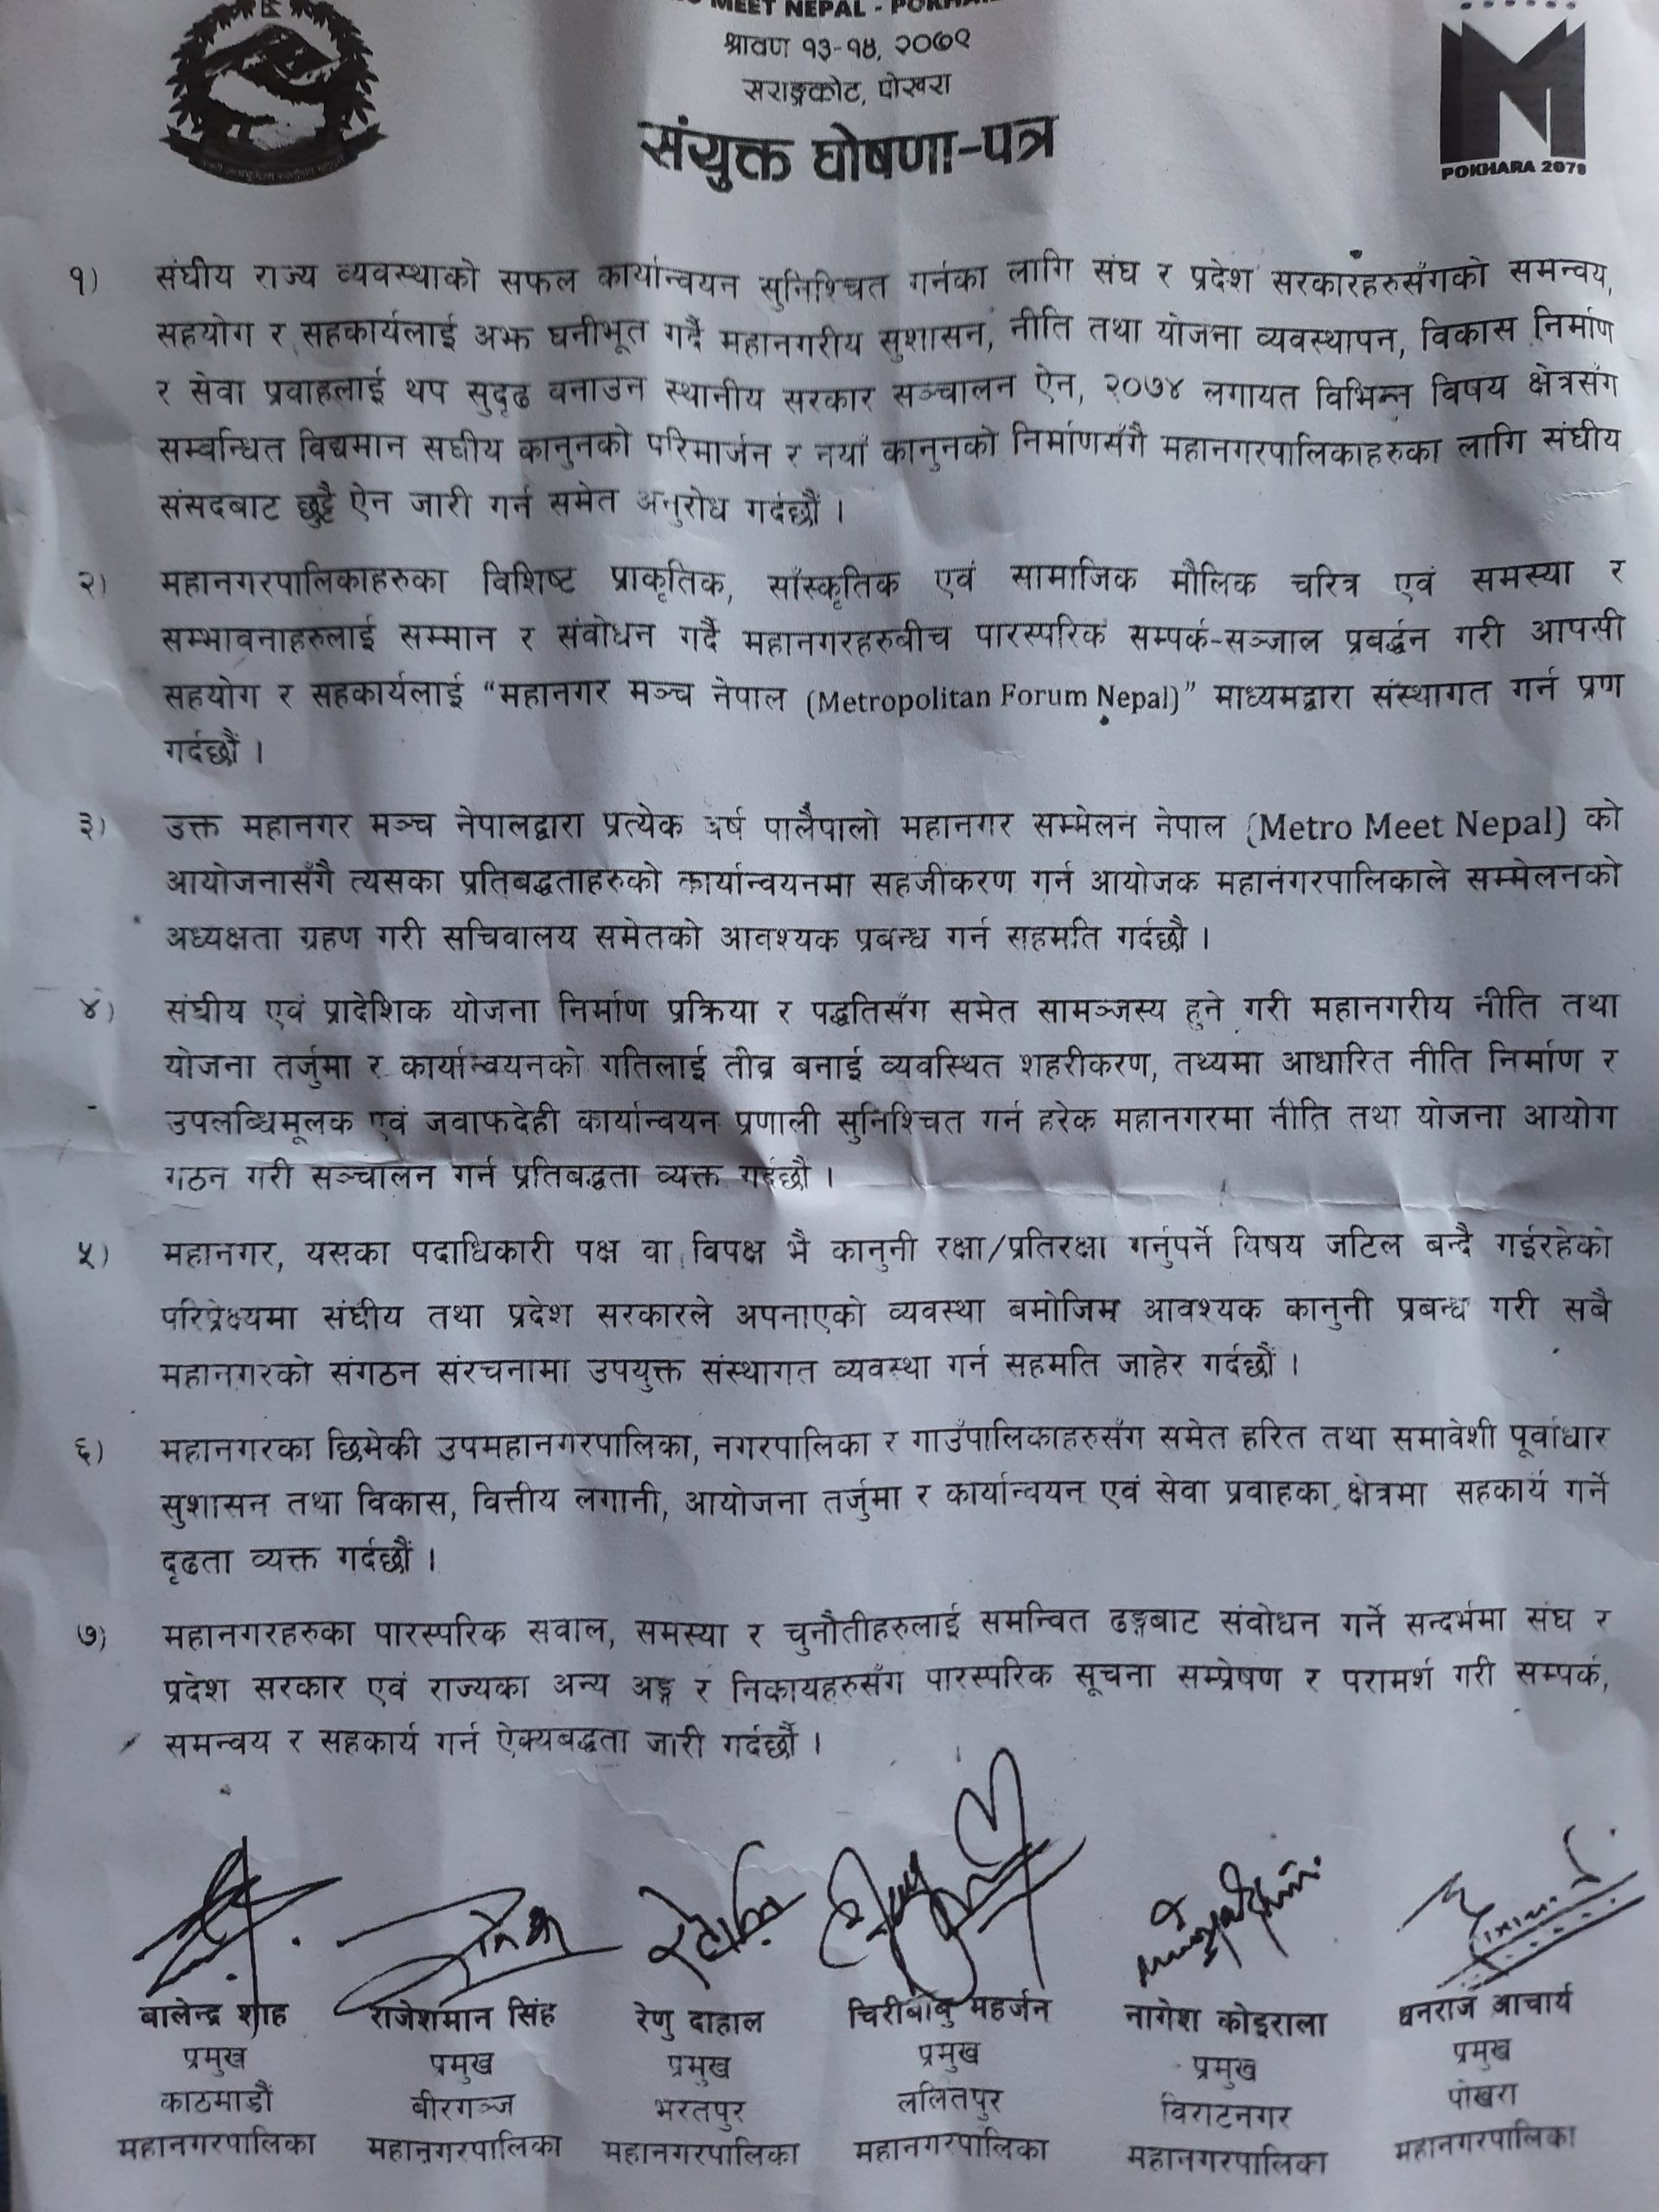 MEET NEPAL - POKHARA
श्रावण १३-१४, २०७९
सराङ्कोट, पोखरा
संयुक्त घोषणा-पत्र
POKHARA 2079
१) संघीय राज्य व्यवस्थाको सफल कार्यान्वयन सुनिश्चित गर्नका लागि संघ र प्रदेश सरकारहरुसँगको समन्वय,
सहयोग र सहकार्यलाई अझ घनीभूत गर्दै महानगरीय सुशासन, नीति तथा योजना व्यवस्थापन, विकास निर्माण
र सेवा प्रवाहलाई थप सुदृढ बनाउन स्थानीय सरकार सञ्चालन ऐन, २०७४ लगायत विभिन्न विषय क्षेत्रसँग
सम्वन्धित विद्यमान सघीय कानुनको परिमार्जन र नयाँ कानुनको निर्माणसँगै महानगरपालिकाहरुका लागि संघीय
संसदबाट छुट्टै ऐन जारी गर्न समेत अनुरोध गर्दछौं ।
२) महानगरपालिकाहरुका विशिष्ट प्राकृतिक, साँस्कृतिक एवं सामाजिक मौलिक चरित्र एवं समस्या र
सम्भावनाहरुलाई सम्मान र संवोधन गर्दै महानगरहरुबीच पारस्परिक सम्पर्क-सञ्जाल प्रबर्द्धन गरी आपसी
सहयोग र सहकार्यलाई “महानगर मञ्च नेपाल (Metropolitan Forum Nepal)” माध्यमद्वारा संस्थागत गर्न प्रण
गर्दछौं ।
३) उक्त महानगर मञ्च नेपालद्वारा प्रत्येक वर्ष पालैपालो महानगर सम्मेलन नेपाल (Metro Meet Nepal) को
आयोजनासँगै त्यसका प्रतिबद्धताहरुको कार्यान्वयनमा सहजीकरण गर्न आयोजक महानगरपालिकाले सम्मेलनको
अध्यक्षता ग्रहण गरी सचिवालय समेतको आवश्यक प्रबन्ध गर्न सहमति गर्दछौ ।
४) संघीय एवं प्रादेशिक योजना निर्माण प्रक्रिया र पद्धतिसँग समेत सामञ्जस्य हुने गरी महानगरीय नीति तथा
योजना तर्जुमा र कार्यान्वयनको गतिलाई तीव्र बनाई व्यवस्थित शहरीकरण, तथ्यमा आधारित नीति निर्माण र
उपलब्धिमूलक एवं जवाफदेही कार्यान्वयन प्रणाली सुनिश्चित गर्न हरेक महानगरमा नीति तथा योजना आयोग
गठन गरी सञ्चालन गर्न प्रतिबद्धता व्यक्त गर्दछौ ।
५) महानगर, यसका पदाधिकारी पक्ष वा विपक्ष भै कानुनी रक्षा/प्रतिरक्षा गर्नुपर्ने विषय जटिल बन्दै गईरहेको
परिप्रेक्ष्यमा संघीय तथा प्रदेश सरकारले अपनाएको व्यवस्था बमोजिम आवश्यक कानुनी प्रबन्ध गरी सबै
महानगरको संगठन संरचनामा उपयुक्त संस्थागत व्यवस्था गर्न सहमति जाहेर गर्दछौं ।
६) महानगरका छिमेकी उपमहानगरपालिका, नगरपालिका र गाउँपालिकाहरुसँग समेत हरित तथा समावेशी पूर्वाधार
सुशासन तथा विकास, वित्तीय लगानी, आयोजना तर्जुमा र कार्यान्वयन एवं सेवा प्रवाहका क्षेत्रमा सहकार्य गर्ने
दृढता व्यक्त गर्दछौं ।
७) महानगरहरुका पारस्परिक सवाल, समस्या र चुनौतीहरुलाई समन्वित ढङ्गबाट संवोधन गर्ने सन्दर्भमा संघ र
प्रदेश सरकार एवं राज्यका अन्य अङ्ग र निकायहरुसँग पारस्परिक सूचना सम्प्रेषण र परामर्श गरी सम्पर्क,
समन्वय र सहकार्य गर्न ऐक्यबद्धता जारी गर्दछौं ।
बालेन्द्र शाह राजेशमान सिंह रेणु दाहाल चिरीबाबु महर्जन नागेश कोइराला धनराज आचार्य
प्रमुख प्रमुख प्रमुख प्रमुख प्रमुख प्रमुख
काठमाडौं बीरगञ्ज भरतपुर ललितपुर विराटनगर पोखरा
महानगरपालिका महानगरपालिका महानगरपालिका महानगरपालिका महानगरपालिका महानगरपालिका